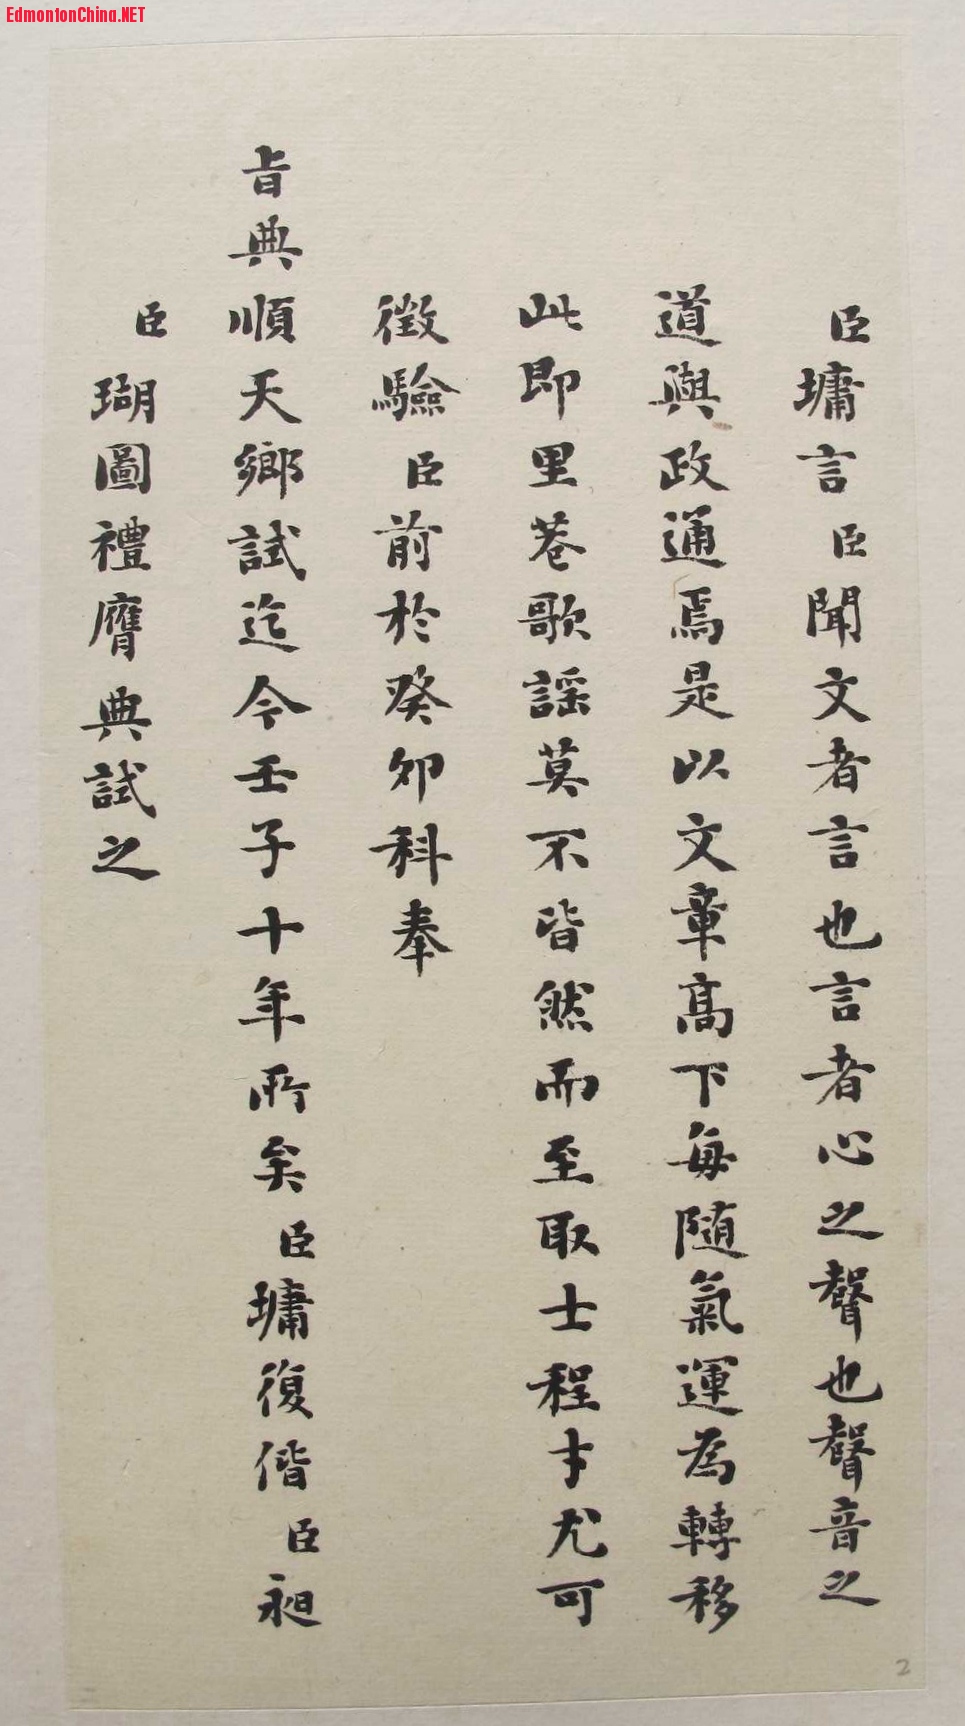 EdmontonChina.NET
臣墉言臣聞文者言也言者心之聲也聲音之
道與政通焉是以文章高下每隨氣運為轉移
此即里巷歌謡莫不皆然而至取士程才尤可
徵驗臣前於癸卯科奉
旨典順天鄉試迄今壬子十年所矣臣墉復偕臣昶
臣瑚圖禮膺典試之
2